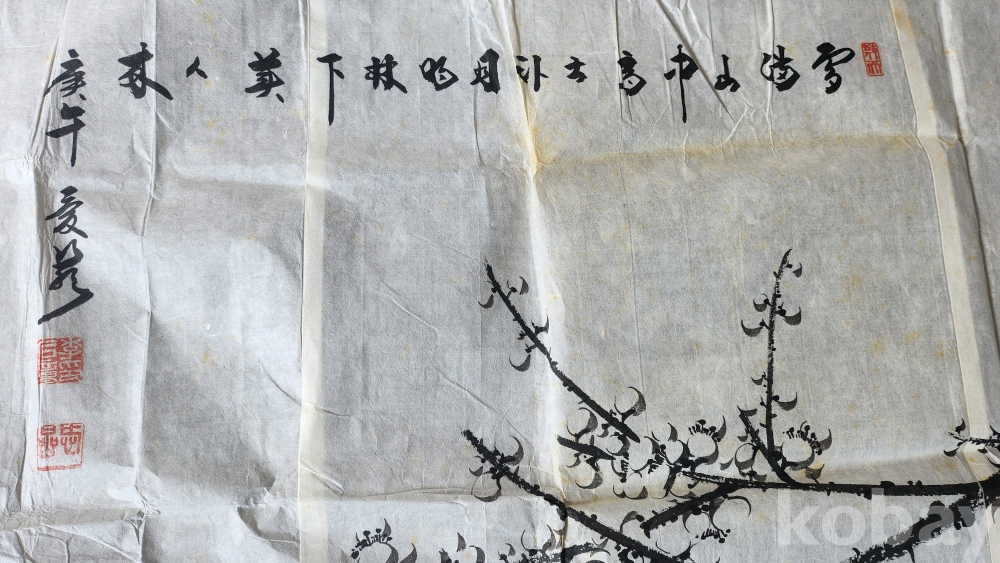 雪滿山中高士卧月明林下美人来
庚午
kobay